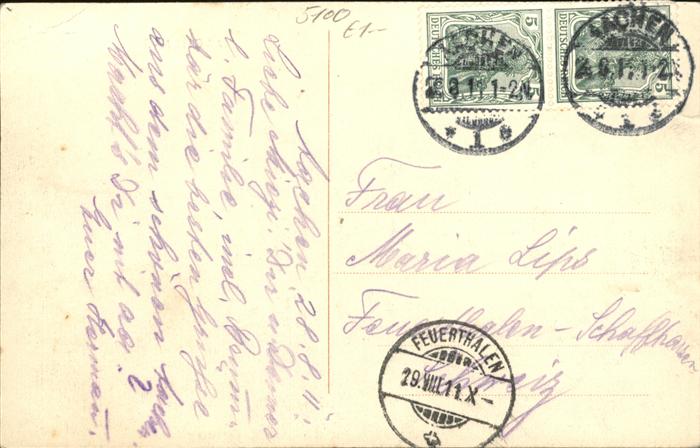 5100
£1.-
DEUTSCHES REICH
5
5
DEUTSCHES REICH
5
5
AACHEN
28.8.11 1-2N
* 1 e
AACHEN
1-2
Aachen 28.8.11.
Liebe Miezi! Dir u. Deiner
l. Familie, incl.
für die besten Grüße
aus dem schönen
Machst Du mit ?
Euer Herman.
Frau
Maria Lips
Feuerthalen-Schaffhausen
Schweiz
FEUERTHALEN
29.VIII.11.X-